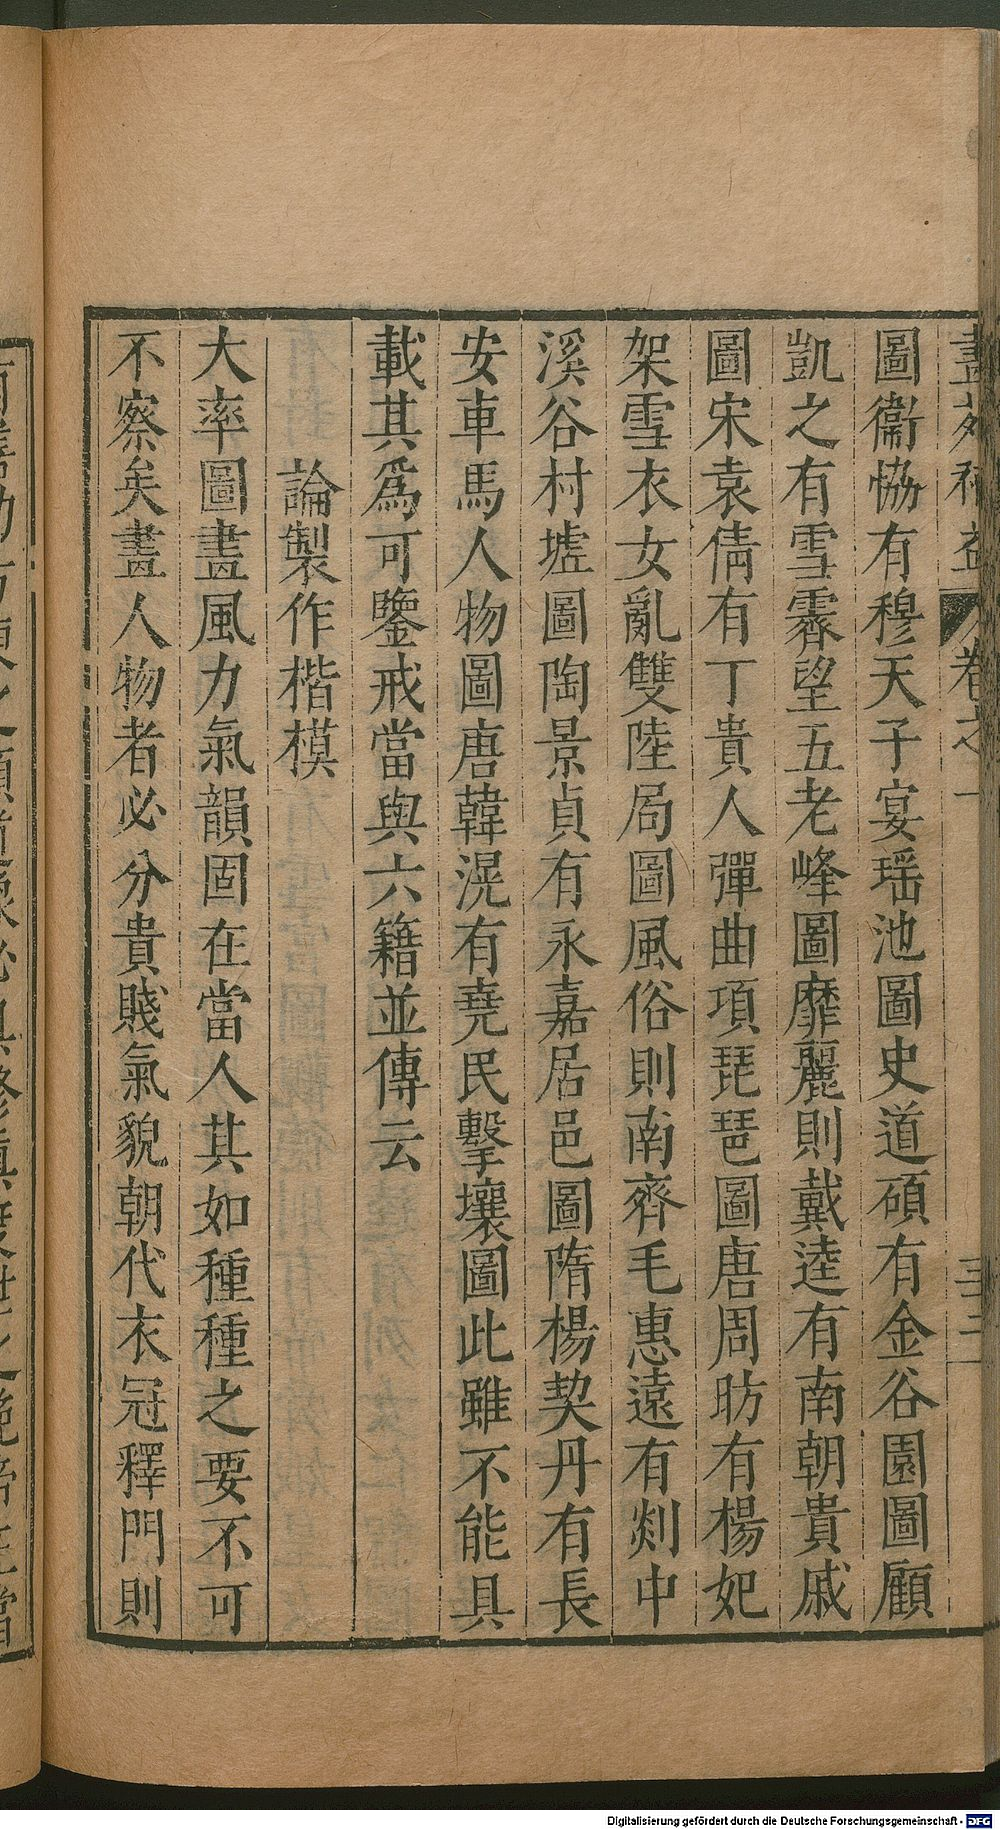 圖衞恊有穆天子宴瑶池圖史道碩有金谷園圖顧
凱之有雪霽望五老峰圖靡麗則戴逵有南朝貴戚
圖宋袁倩有丁貴人彈曲項琵琶圖唐周昉有楊妃
架雪衣女亂雙陸局圖風俗則南齊毛惠遠有剡中
溪谷村墟圖陶景貞有永嘉居邑圖隋楊契丹有長
安車馬人物圖唐韓滉有堯民擊壤圖此雖不能具
載其爲可鑒戒當與六籍並傳云
論製作楷模
大率圖畫風力氣韻固在當人其如種種之要不可
不察矣畫人物者必分貴賤氣貌朝代衣冠釋門則
Digitalisierung gefördert durch die Deutsche Forschungsgemeinschaft - DFG